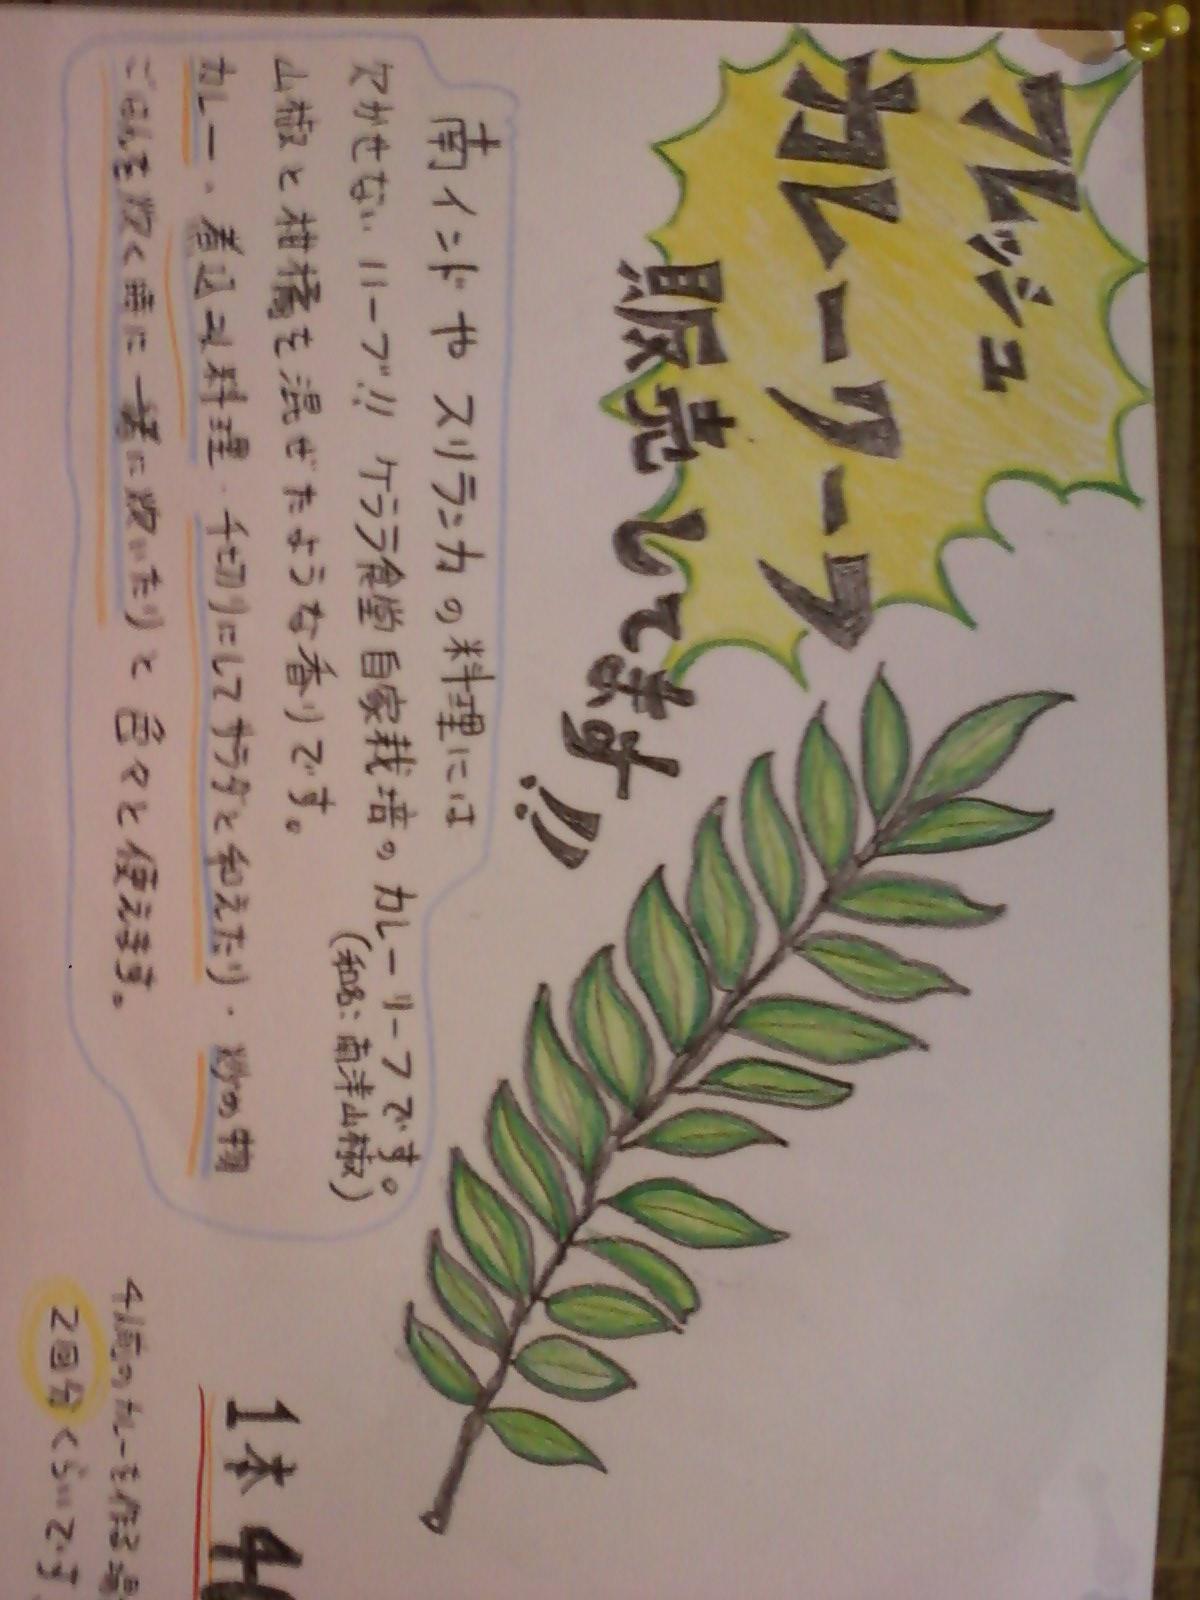 フレッシュ
カレーリーフ
販売してます!!
南インドや スリランカの料理には
欠かせない ハーブ!! ケララ食堂自家栽培のカレーリーフです。
(和名:南洋山椒)
山椒と柑橘を混ぜたような香りです。
カレー・煮込み料理・千切りにしてサラダと和えたり・炒め物
ごはんを炊く時に一緒に炊いたりと 色々と使えます。
1本 4
4人前のカレーを作る場
2回分くらいです